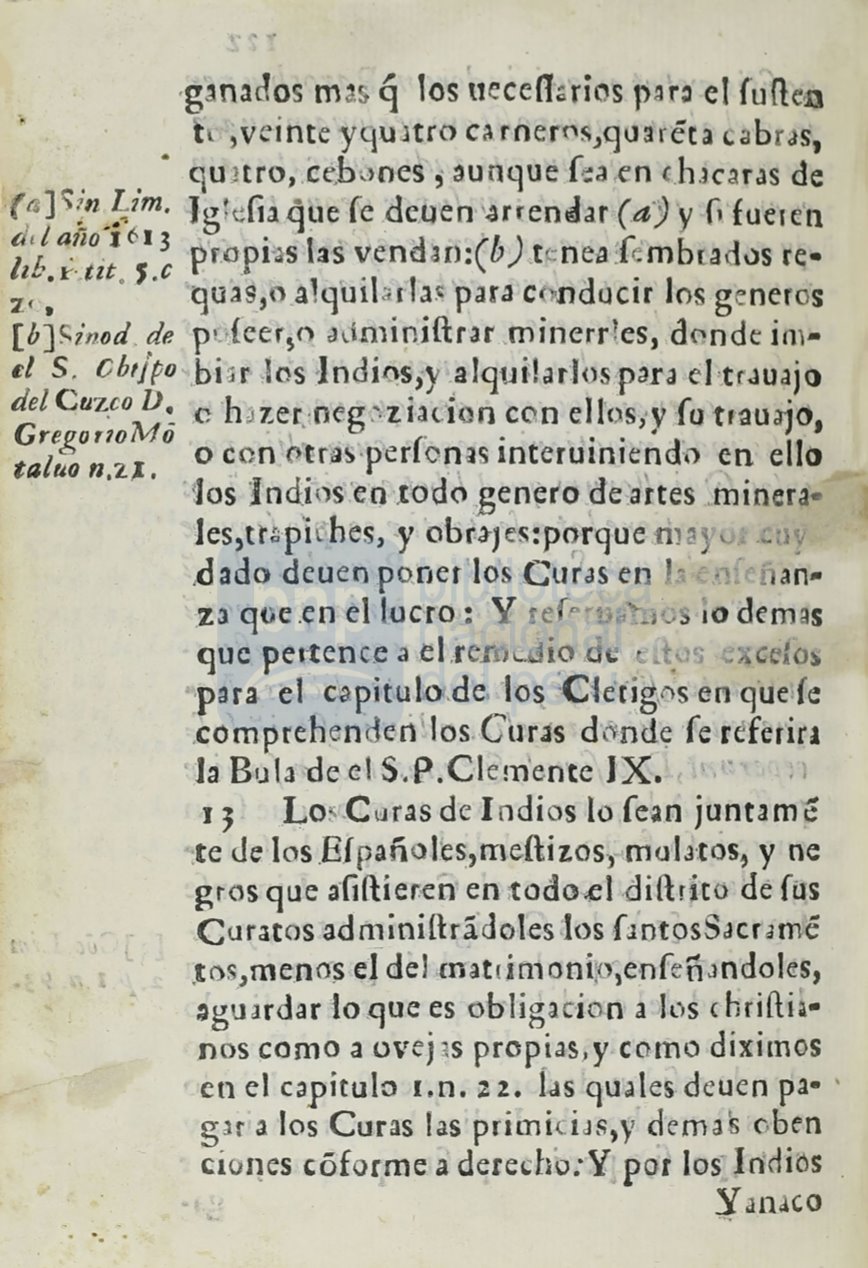 (a]Sin Lim.
del año 1613
lib. 1 tit. 5.c
[b]Sinod de
el S. Obispo
del Cuzco D.
Gregorio Mõ
taluo n.21.
ganados mas q̃ los necessarios para el susten
to ,veinte y quatro carneros,quarẽta cabras,
quatro, cebones , aunque sea en chacaras de
Iglesia que se deuen arrendar (a) y si fueren
propias las vendan:(b) tenea sembrados re-
quas,o alquilarlas para conducir los generos
poseer,o administrar minerales, donde im-
biar los Indios,y alquilarlos para el trauajo
o hazer negoziacion con ellos,y su trauajo,
o con otras personas interuiniendo en ello
los Indios en todo genero de artes minera-
les,trapiches, y obrajes:porque mayor cuy
dado deuen poner los Curas en la enseñan-
za que en el lucro : Y reseruamos lo demas
que pertence a el remedio de estos excesos
para el capitulo de los Clerigos en que se
comprehenden los Curas donde se referira
la Bula de el S.P.Clemente IX.
13 Los Curas de Indios lo sean juntamẽ
te de los Españoles,mestizos, mulatos, y ne
gros que asistieren en todo el distrito de sus
Curatos administrãdoles los santos Sacramẽ
tos,menos el del matrimonio,enseñandoles,
aguardar lo que es obligacion a los christia-
nos como a ovejas propias,y como diximos
en el capitulo 1.n. 22. las quales deuen pa-
gar a los Curas las primicias,y demas oben
ciones cõforme a derecho: Y por los Indios
Yanaco